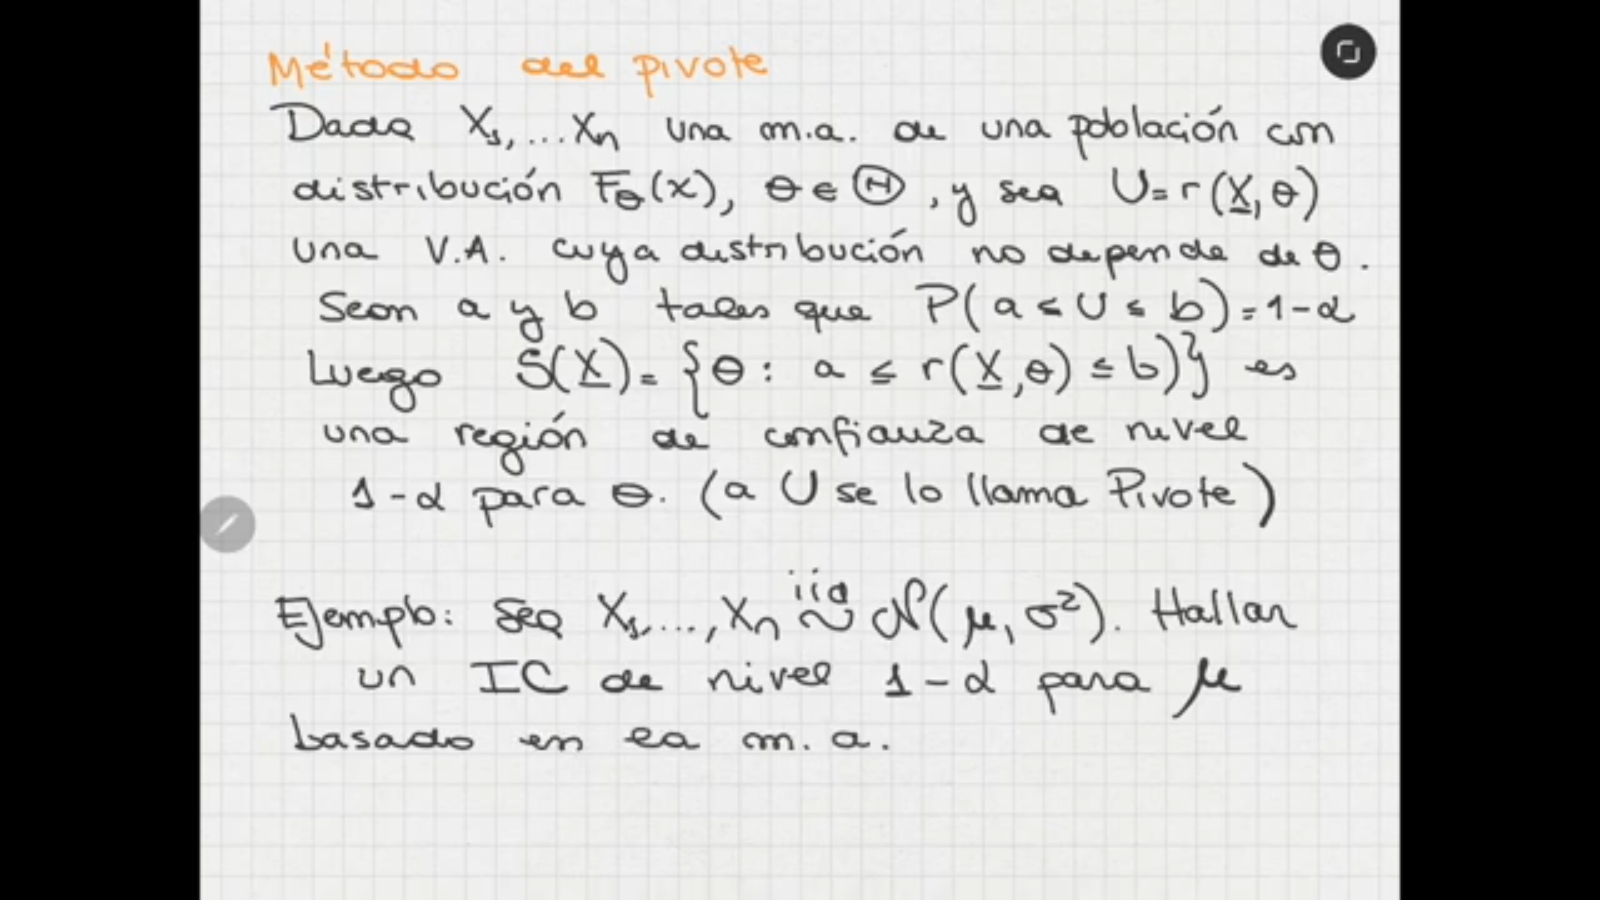 Método del pivote
Dada X₁,...Xn una m.a. de una población con
distribución Fθ(x), θ ∈ Θ, y sea U=r(X, θ)
una V.A. cuya distribución no depende de θ.
Sean a y b tales que P(a ≤ U ≤ b)=1-α
Luego S(X)= {θ: a ≤ r(X,θ) ≤ b)} es
una región de confianza de nivel
1-α para θ. (a U se lo llama Pivote)
Ejemplo: Sea X₁,...,Xn iid ~ N(μ, σ²). Hallar
un IC de nivel 1-α para μ
basado en la m.a.